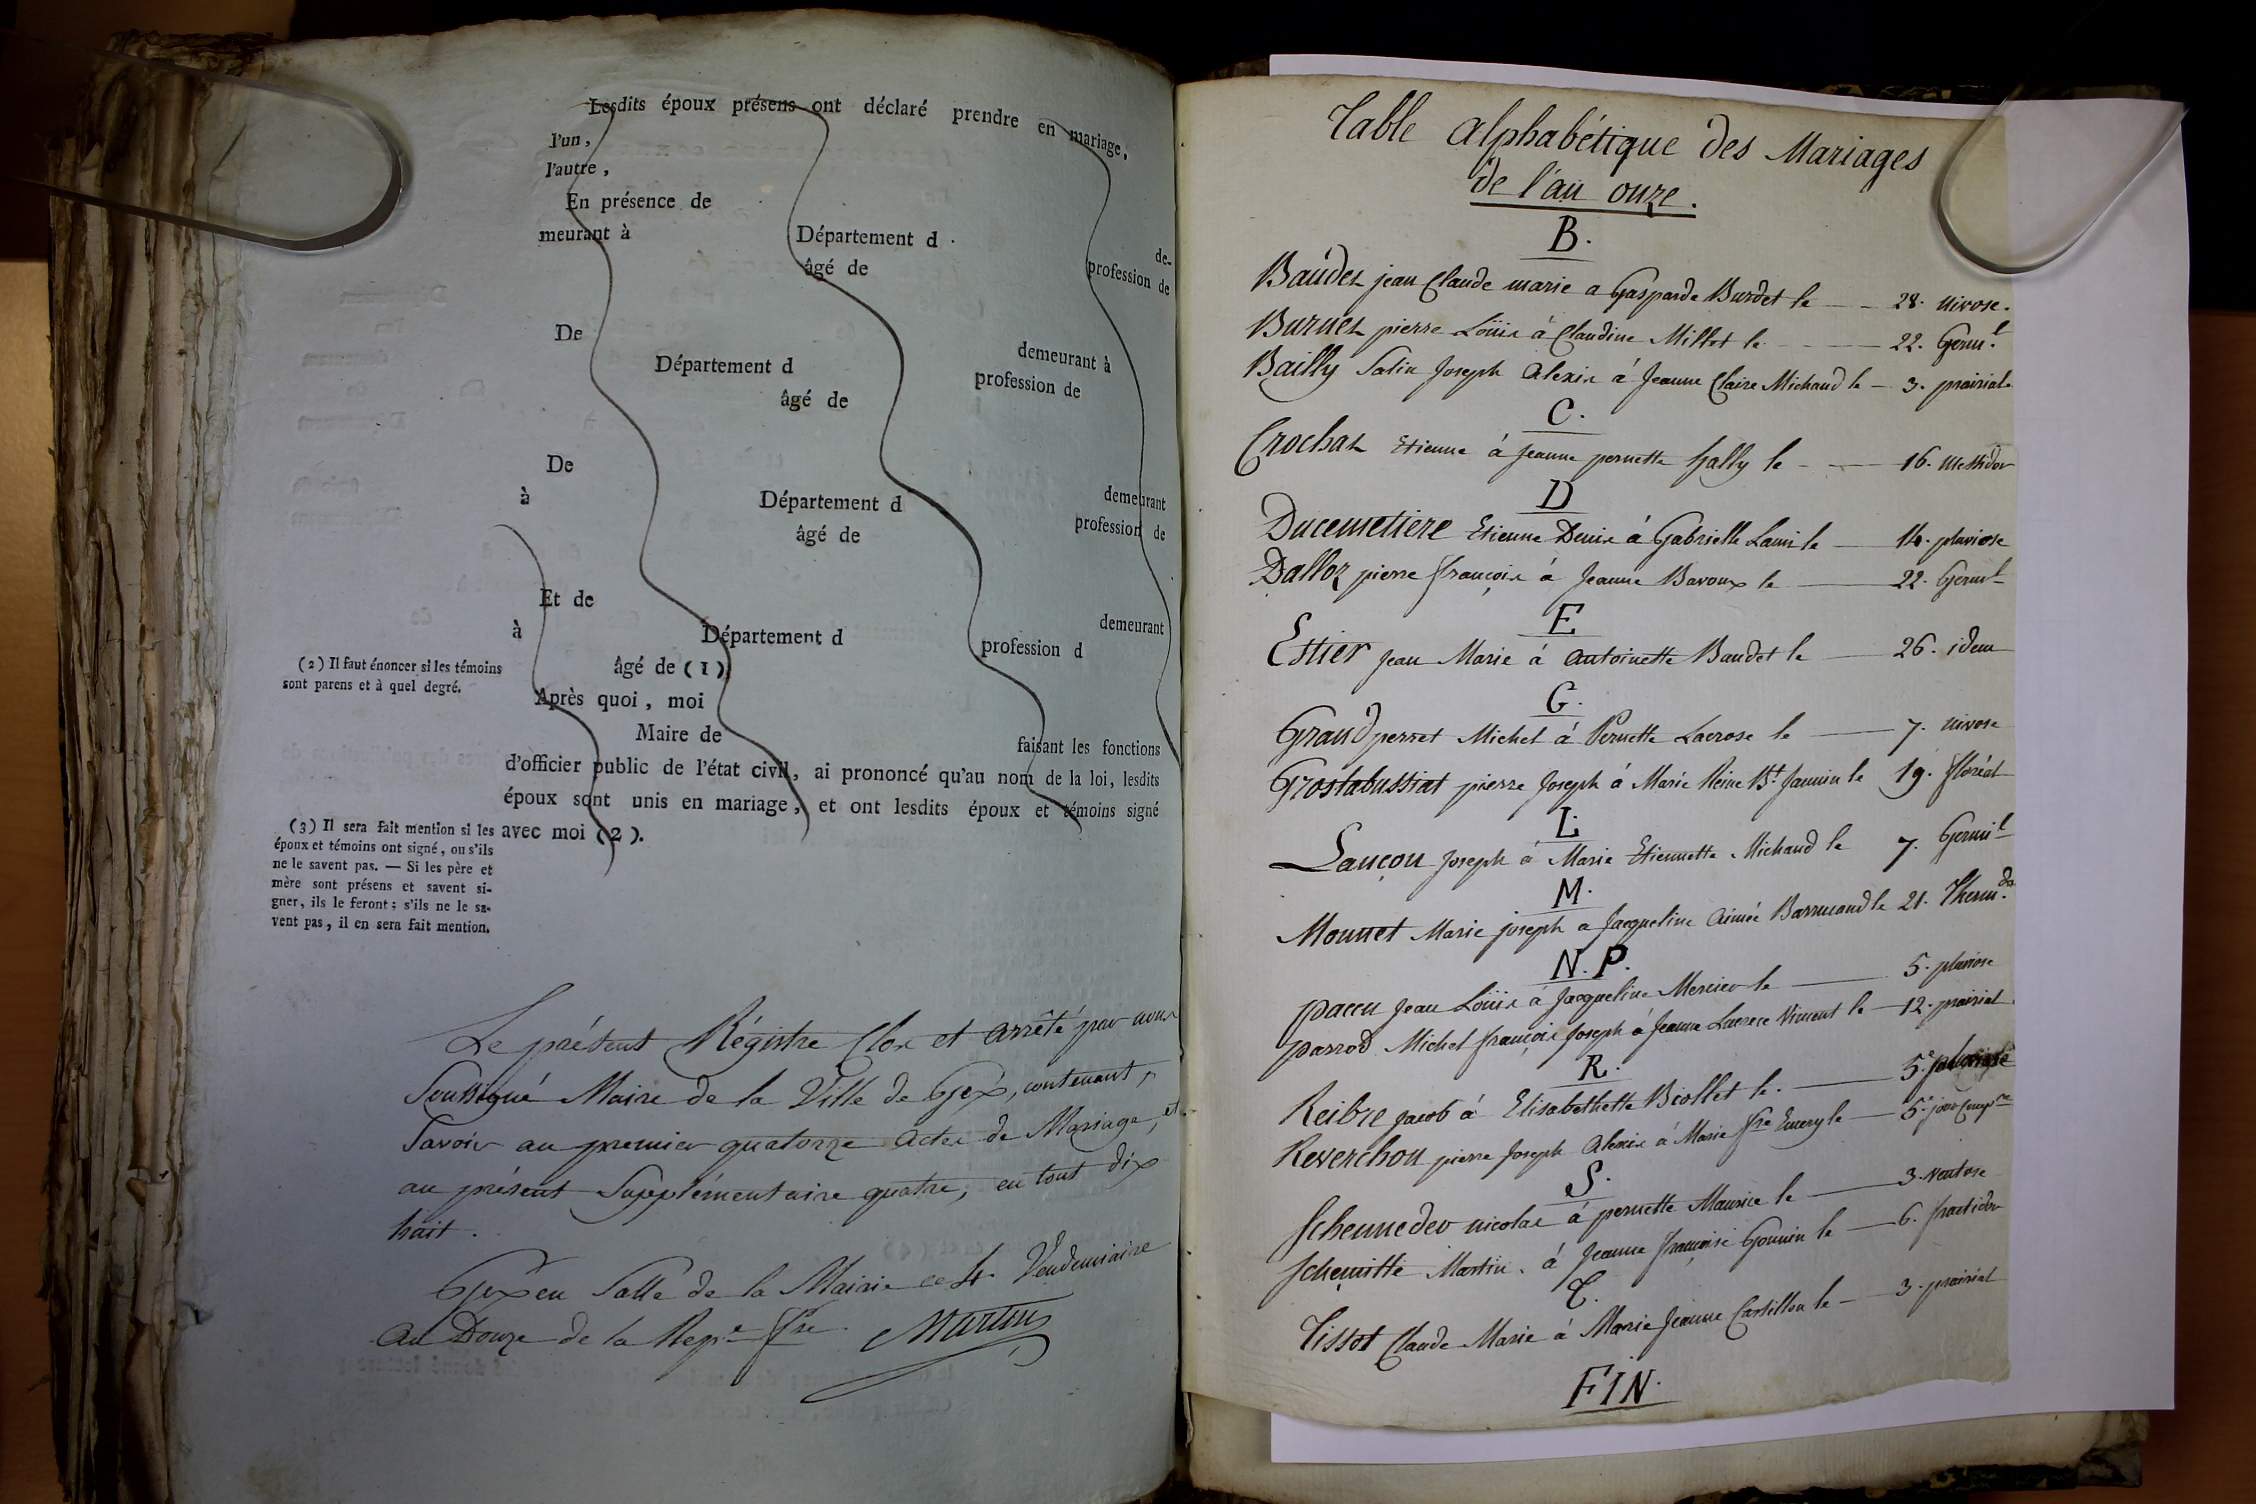 Lesdits époux présens ont déclaré prendre en mariage,
l'un,
l'autre,
En présence de
de-
meurant à Département d
âgé de profession de
De
demeurant à
Département d profession de
âgé de
De demeurant
à Département d profession de
âgé de
Et de demeurant
à Département d profession d
âgé de (1)
Après quoi, moi
Maire de faisant les fonctions
d'officier public de l'état civil, ai prononcé qu'au nom de la loi, lesdits
époux sont unis en mariage, et ont lesdits époux et témoins signé
avec moi (2).
(2) Il faut énoncer si les témoins
sont parens et à quel degré.
(3) Il sera fait mention si les
époux et témoins ont signé, ou s'ils
ne le savent pas. — Si les père et
mère sont présens et savent si-
gner, ils le feront; s'ils ne le sa-
vent pas, il en sera fait mention.
Le présent Régistre Clos et arrêté par nous
Soussigné Maire de la Ville de Gex, contenant,
Savoir au premier quatorze actes de Mariage, et
au présent Supplémentaire quatre, en tout dix
huit.
Gex en Salle de la Mairie ce 4 Vendemiaire
an Douze de la Rep.e fr.e Martin
Table alphabétique des Mariages
de l'an onze.
B.
Baudet jean Claude marie a Gasparde Burdet le — 28. nivose.
Burnet pierre Loüis à Claudine Millet le — 22. Germ.l
Bailly Salin Joseph Alexis à Jeanne Claire Michaud le — 3. prairial
C.
Crochat Etienne à Jeanne pernette Gally le — 16. Messidor
D
Ducemetiere Etienne Denis à Gabrielle Lami le — 14. pluviose
Dalloz pierre françois à Jeanne Bavoux le — 22. Germ.l
E
Estier Jean Marie à antoinette Baudet le — 26. idem
G.
Grandperret Michel à Pernette Lacrose le — 7. nivose
Grostabussiat pierre Joseph à Marie Reine B.t Jannin le 19. floréal
L.
Lançon Joseph à Marie Etiennette Michaud le 7. Germi.l
M.
Monnet Marie joseph a Jacqueline Aimée Barmand le 21. Therm.do
N. P.
paccu Jean Loüis à Jacqueline Mercier le — 5. pluviose
parrod Michel françois Joseph à Jeanne Lucrece Vincent le — 12. prairial
R.
Reibre jacob à Elisabethette Biollet le. — 5.
Reverchon pierre Joseph Alexis à Marie fr.e Emery le — 5.e jour Comp.re
S.
Schennedev nicolas à pernette Maurice le — 3. ventose
Schemitte Martin. à Jeanne françoise Gonnin le — 6. fructidor
T.
Tissot Claude Marie à Marie Jeanne Castillon le — 3. prairial
FIN.